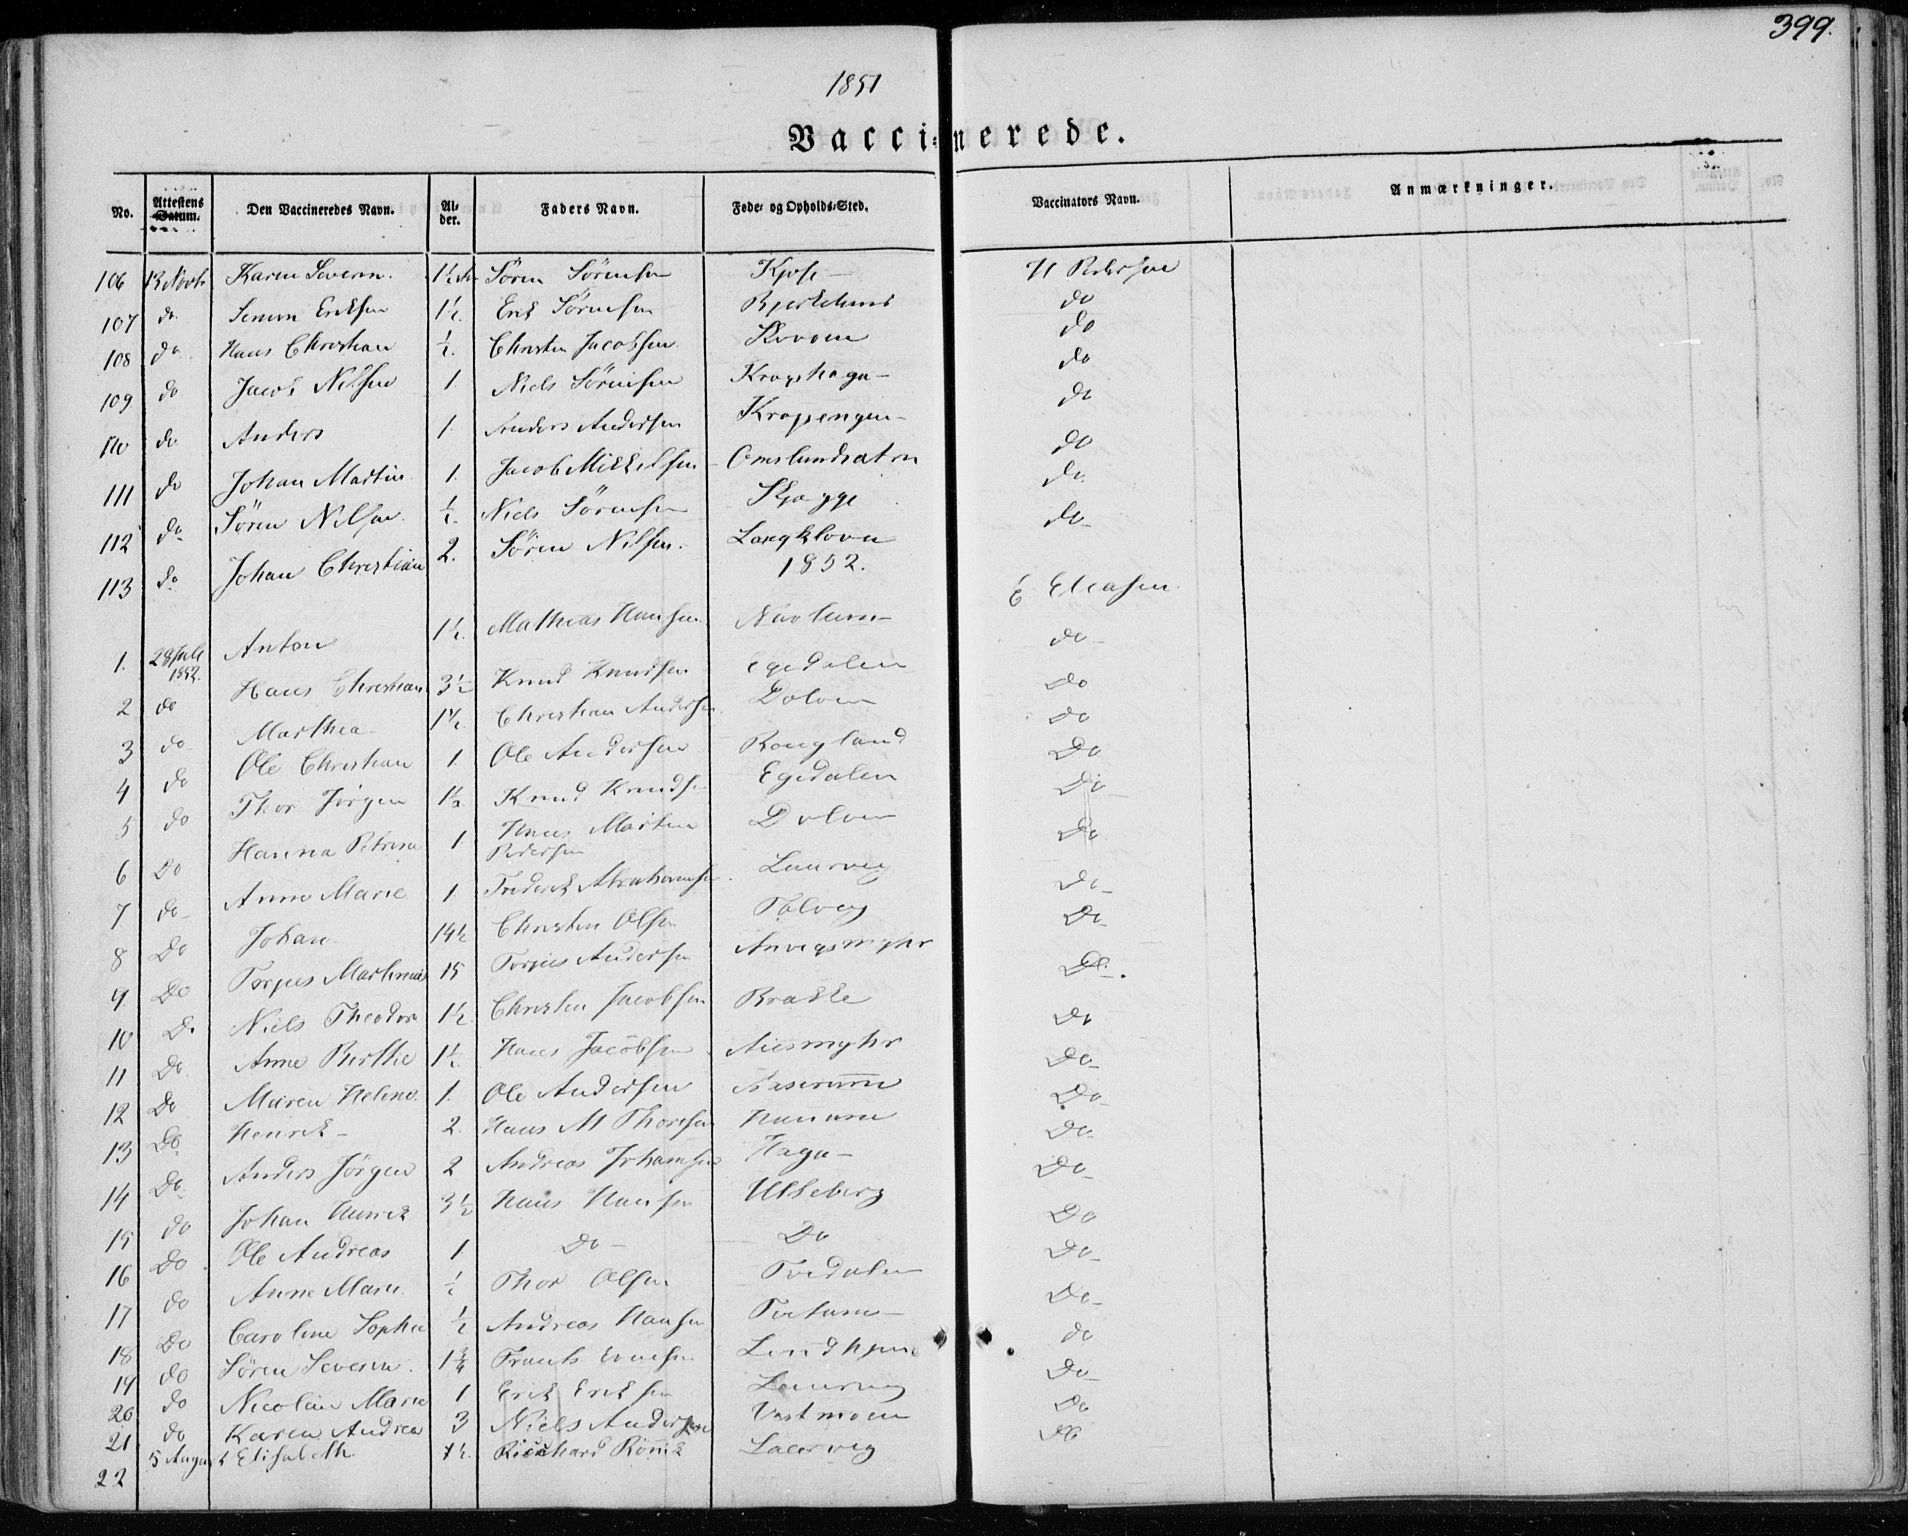 399.
1851
Vaccinerede.
No. Attestens Datum. Den Vaccineredes Navn. Alder. Faders Navn. Føde- og Opholds-Sted. Vaccinators Navn. Anmærkninger.
106 13 Novbr Karen Severin. 1½ Sören Sörensen Kjose H Pedersen
107 do Simon Eriksen 1½. Erik Sörensen Bjerkelund do
108 do Hans Christian ½. Christen Jacobsen. do
109 do Jacob Nilsen 1. Niels Sörensen Krogshaga do
110 do Anders 1. Anders Andersen Kropengen do
111 do Johan Martin 1. Jacob Mikkelsen Omslundsatrn do
112 do Sören Nilsen ½. Niels Sörensen Skjegge do
113 do Johan Christian 2. Sören Nilsen. Langklovn do
1852.
1. 28 Juli 1852. Anton 1½. Mathias Hansen Navlum E Eliasen
2 do Hans Christian 3½ Knud Knudsen Egedalen do
3 do Marthea 1½. Christian Andersen Dolven do
4 do Ole Christian 1 Ole Andersen Rougland do
5 do Thor Jörgen 1½ Knud Knudsen Egedalen Do
6 Do Hanna Petrina 1 Hans Martin Pedersen Dolven Do
7 do Anne Marie 1 Frederik Abrahamsen. Laurvig Do
8 Do Johan 14½ Christen Olsen Tolvey Do
9 Do Torjus Martinius 15 Torjus Andersen Anvigsmyhr Do
10 Do Niels Theodor 1½ Christen Jacobsen Brække Do.
11 Do Anne Berthe 1½. Hans Jacobsen Aasmyhr Do
12 Do Maren Helene 1. Ole Andersen Do
13 Do. Henrik 2. Hans M Thoresen Hanum Do
14 Do Anders Jörgen 2 Andreas Johansen Haga Do
15 do Johan Henrik 3½ Hans Hansen Ulseberg Do
16 Do Ole Andreas 1 Do Do Do
17 do Anne Marie ½ Thor Olsen Tvedalen Do
18 Do Caroline Sophie ½ Andreas Hansen Tvetum Do
19 do Sören Severin. 1¾ Frants Evensen Lindhjem do
20 do Nicoline Marie 1 Erik Eriksen Laurvig Do
21 do Karen Andrea 3 Niels Andersen Vestmoen Do
22 5 August Elisabeth 1½. Richard Rönnek Laurvig do